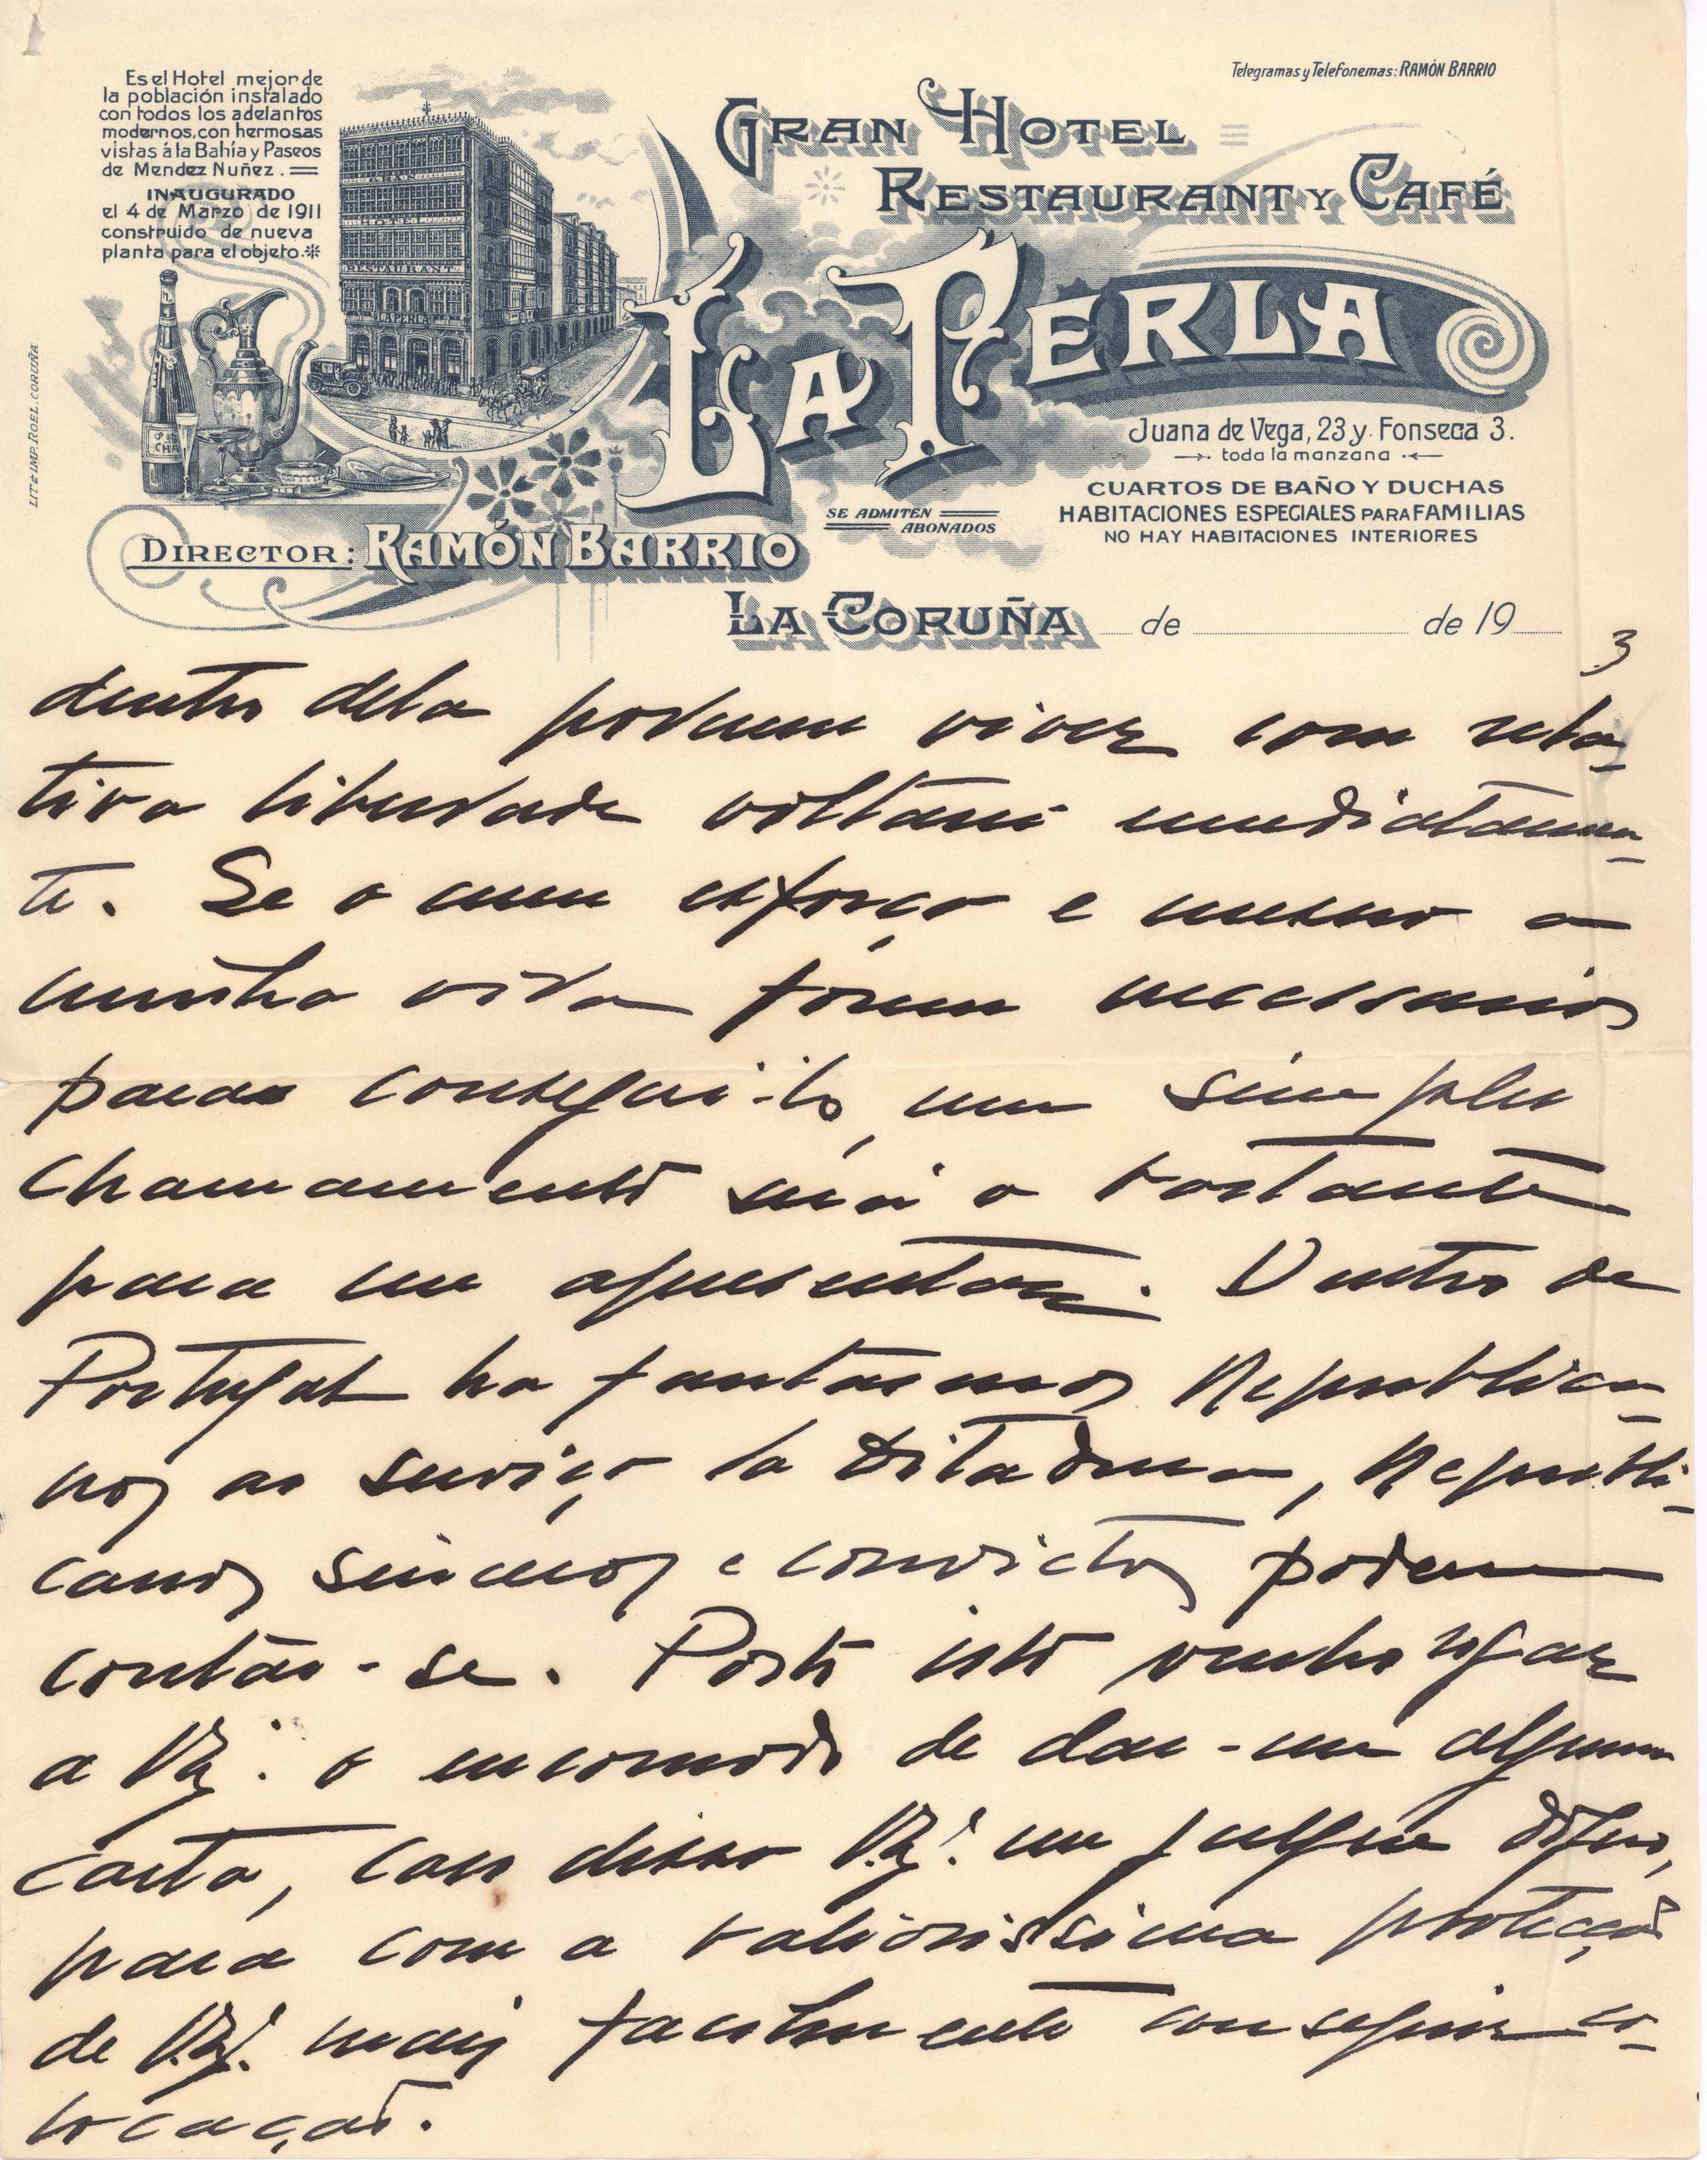 Telegramas y Telefonemas: RAMÓN BARRIO
Es el Hotel mejor de
la población instalado
con todos los adelantos
modernos, con hermosas
vistas á la Bahía y Paseos
de Mendez Nuñez.
INAUGURADO
el 4 de Marzo de 1911
construido de nueva
planta para el objeto.
GRAN HOTEL
RESTAURANT Y CAFÉ
LA PERLA
GRAN
HOTEL
RESTAURANT
LA PERLA
Juana de Vega, 23 y Fonseca 3.
toda la manzana
CUARTOS DE BAÑO Y DUCHAS
HABITACIONES ESPECIALES PARA FAMILIAS
NO HAY HABITACIONES INTERIORES
SE ADMITEN
ABONADOS
LIT. é IMP. ROEL. CORUÑA
DIRECTOR: RAMÓN BARRIO
LA CORUÑA de de 19
3
dentro dela podérem viver com rela-
tiva liberdade voltarei imediatamen-
te. Se o meu esforço e mesmo a
minha vida fôrem necessarios
para consegui-lo, um simples
chamamento será o bastante
para me apresentar. Dentro de
Portugal ha fantasmas Republica-
nos ao serviço da Ditadura, Republi-
canos sinceros e convictos podem
contar-se. Posto isto venho rogar
a V.Exª. o encomodo de dar-me alguma
carta, caso disso V.Exª. me julgue digno,
para com a valiosissima protecção
de V.Exª. mais facilmente conseguir co-
locação.